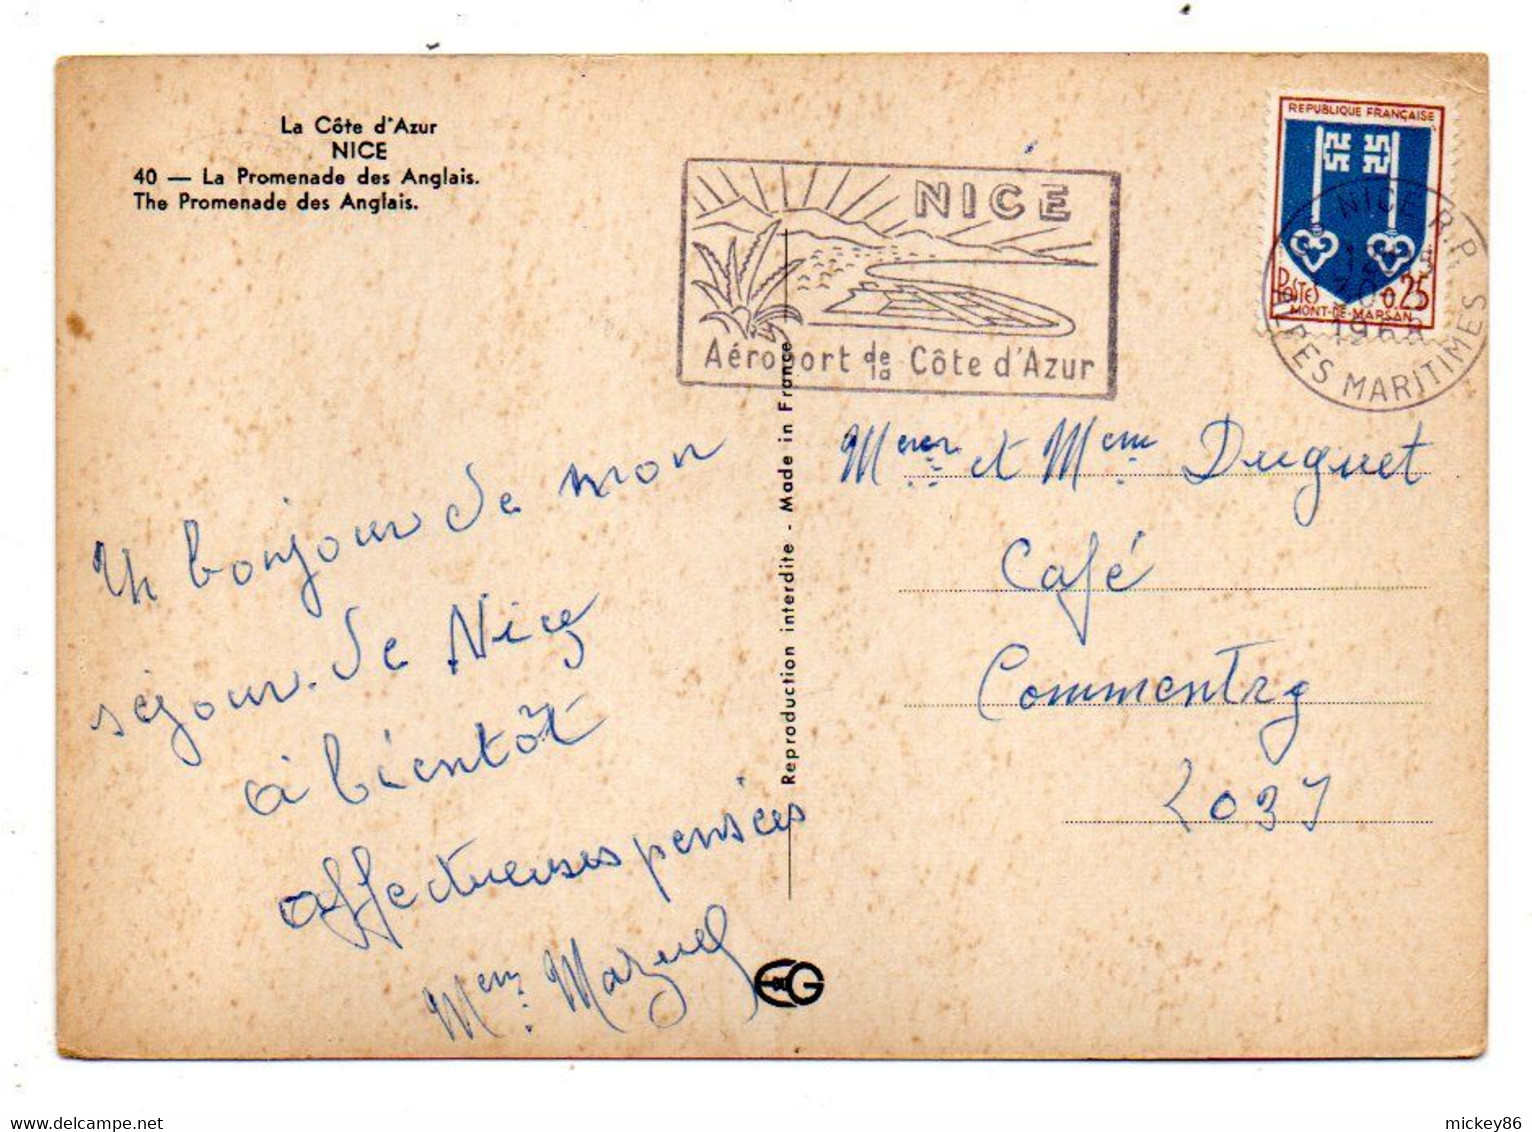 La Côte d'Azur
NICE
40 — La Promenade des Anglais.
The Promenade des Anglais.
NICE
Aéroport de la Côte d'Azur
REPUBLIQUE FRANÇAISE
POSTES 0,25
MONT-DE-MARSAN
NICE R.P.
1968
ALPES MARITIMES
Un bonjour de mon
séjour de Nice
à bientôt
affectueuses pensées
Reproduction interdite - Made in France
Duguet
Café
Commentry
EG
mickey86
delcampe.net